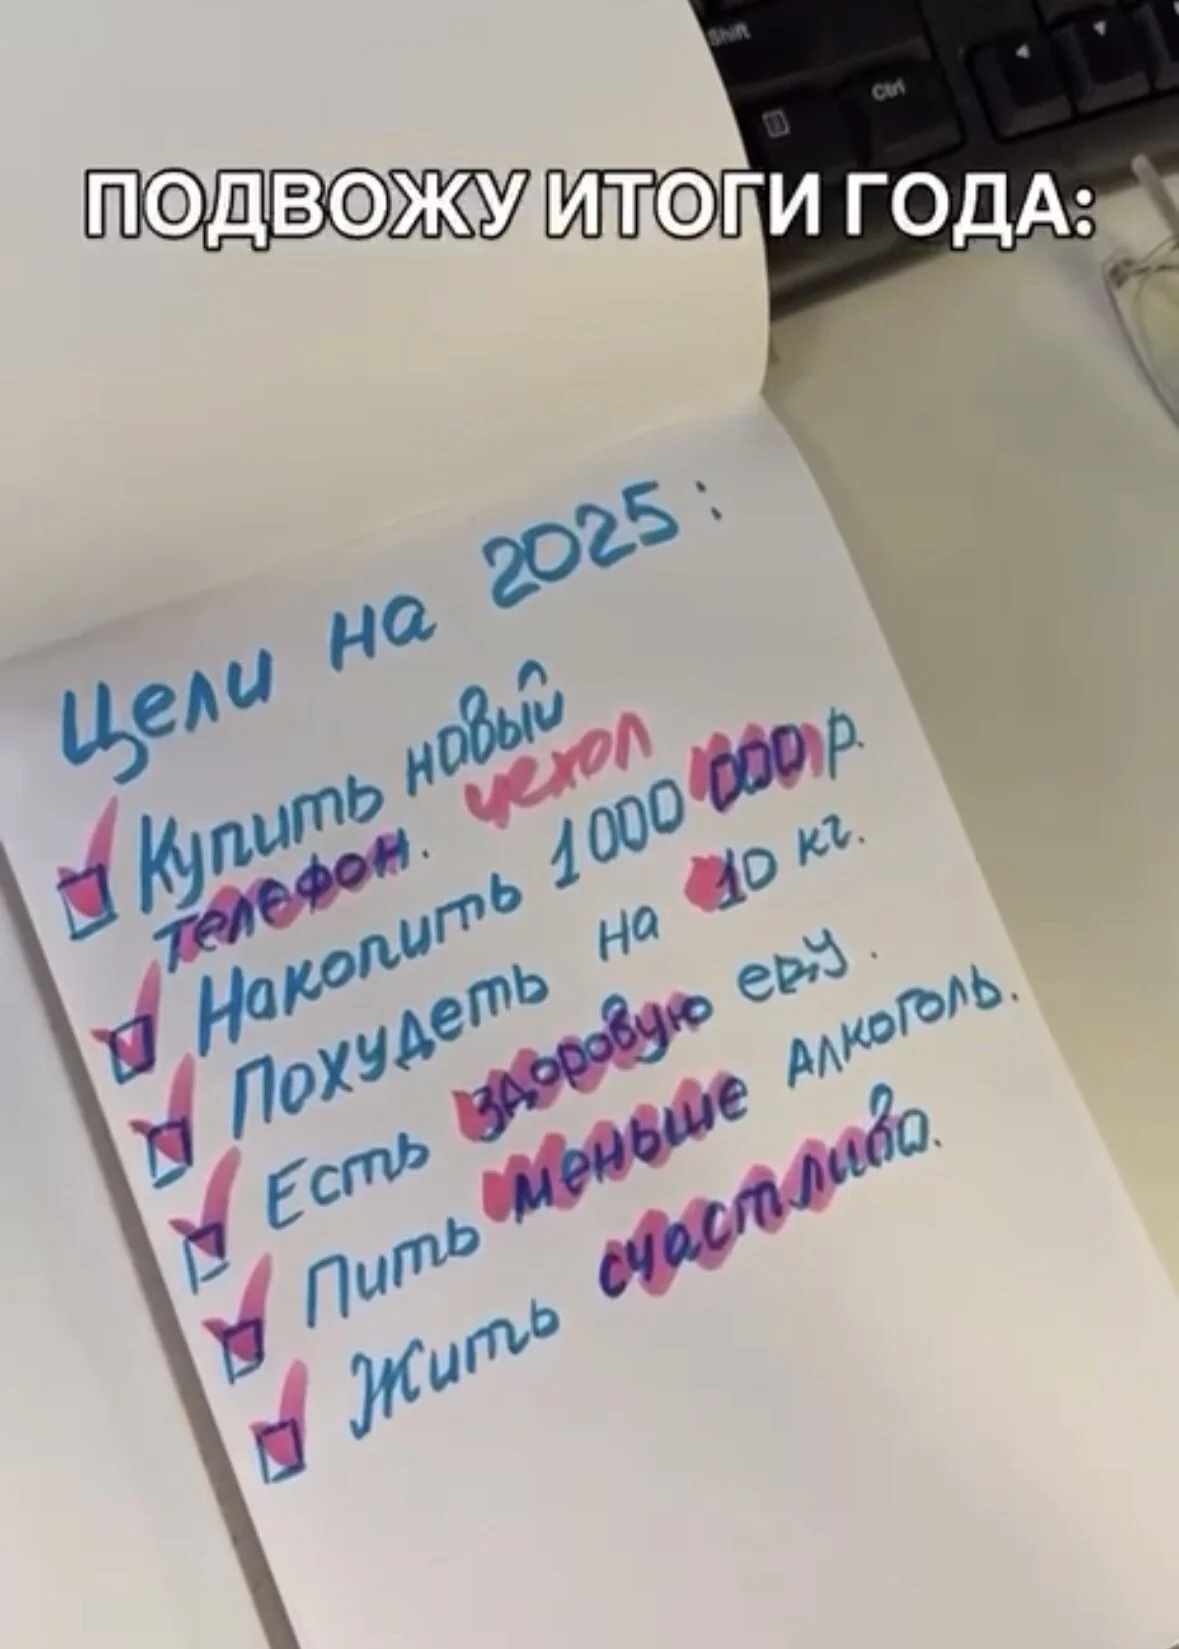 Shift
Ctrl
ПОДВОЖУ ИТОГИ ГОДА:
Цели на 2025:
Купить новый чехол
телефон.
Накопить 1000 000 р.
Похудеть на 10 кг.
Есть здоровую еду.
Пить меньше алкоголь.
Жить счастливо.